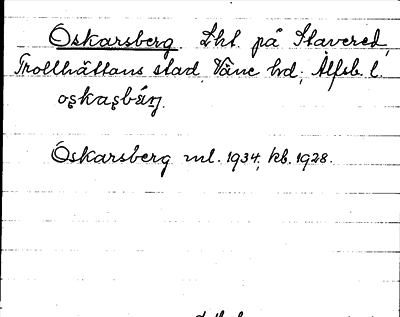 Oskarsberg. Lht. på Stavered,
Trollhättans stad, Väne hd; Älfsb. l.
Oskarsberg ml. 1934, kb. 1928.